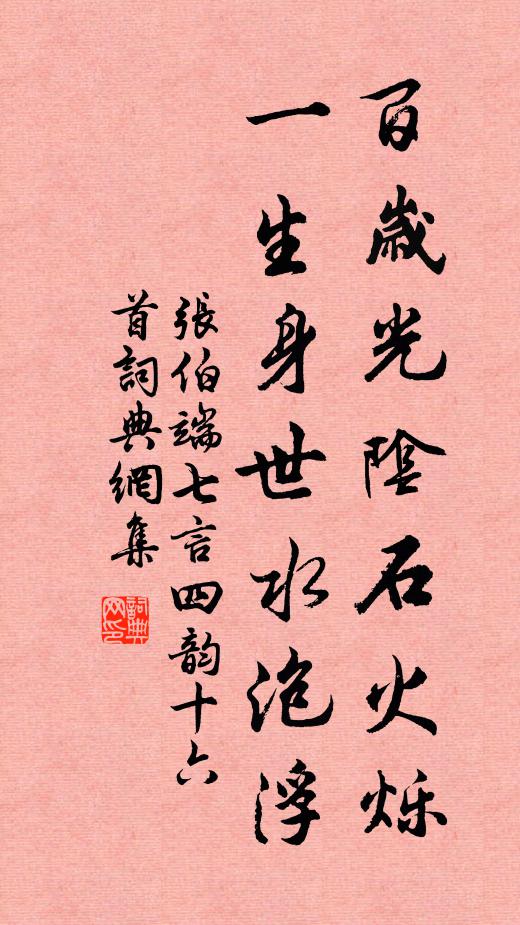 百歲光陰石火烁
一生身世水泡浮
張伯端七言四韵十六
首詞典網集
詞典
网印